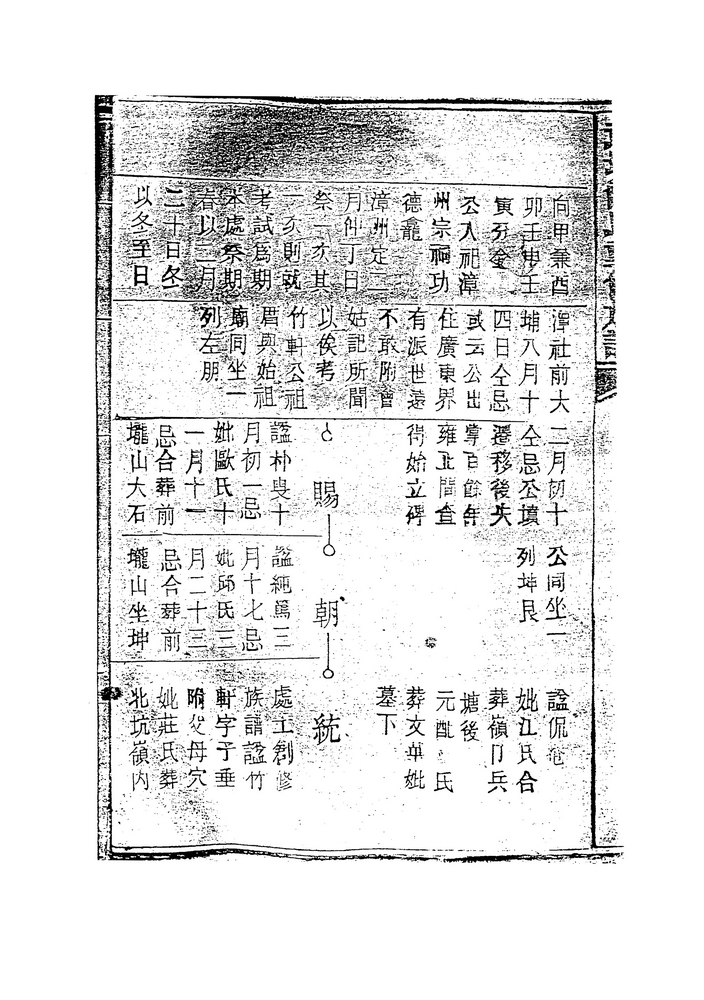 向甲兼酉
卯壬申壬
寅分金
公入祀漳
州宗祠功
德龕
漳州定二
月仲丁日
祭一次其
一次則就
考試為期
本處祭期
春以二月
二十日冬
以冬至日
潭社前大
埔八月十
四日仝忌
或云公出
住廣東界
有派世遠
不敢附會
姑記所聞
以俟考
竹軒公祖
眉與始祖
廟同坐一
列左朋
二月初十
仝忌公墳
遷移後失
掌百餘年
雍正間查
得始立碑
賜
諡朴叟十
月初一忌
妣歐氏十
一月十一
忌合葬前
壠山大石
公同坐一
列坤艮
朝
諡純篤三
月十七忌
妣邱氏三
月二十三
忌合葬前
壠山坐坤
諡侃
妣江氏合
葬嶺口兵
塘後
元妣 氏
葬文華妣
墓下
統
處士創修
族譜諡竹
軒字子垂
附父母穴
妣莊氏葬
北坑嶺內